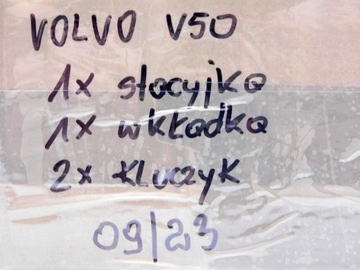 VOLVO V50
1x stacyjka
1x wkładka
2x kluczyk
09/23